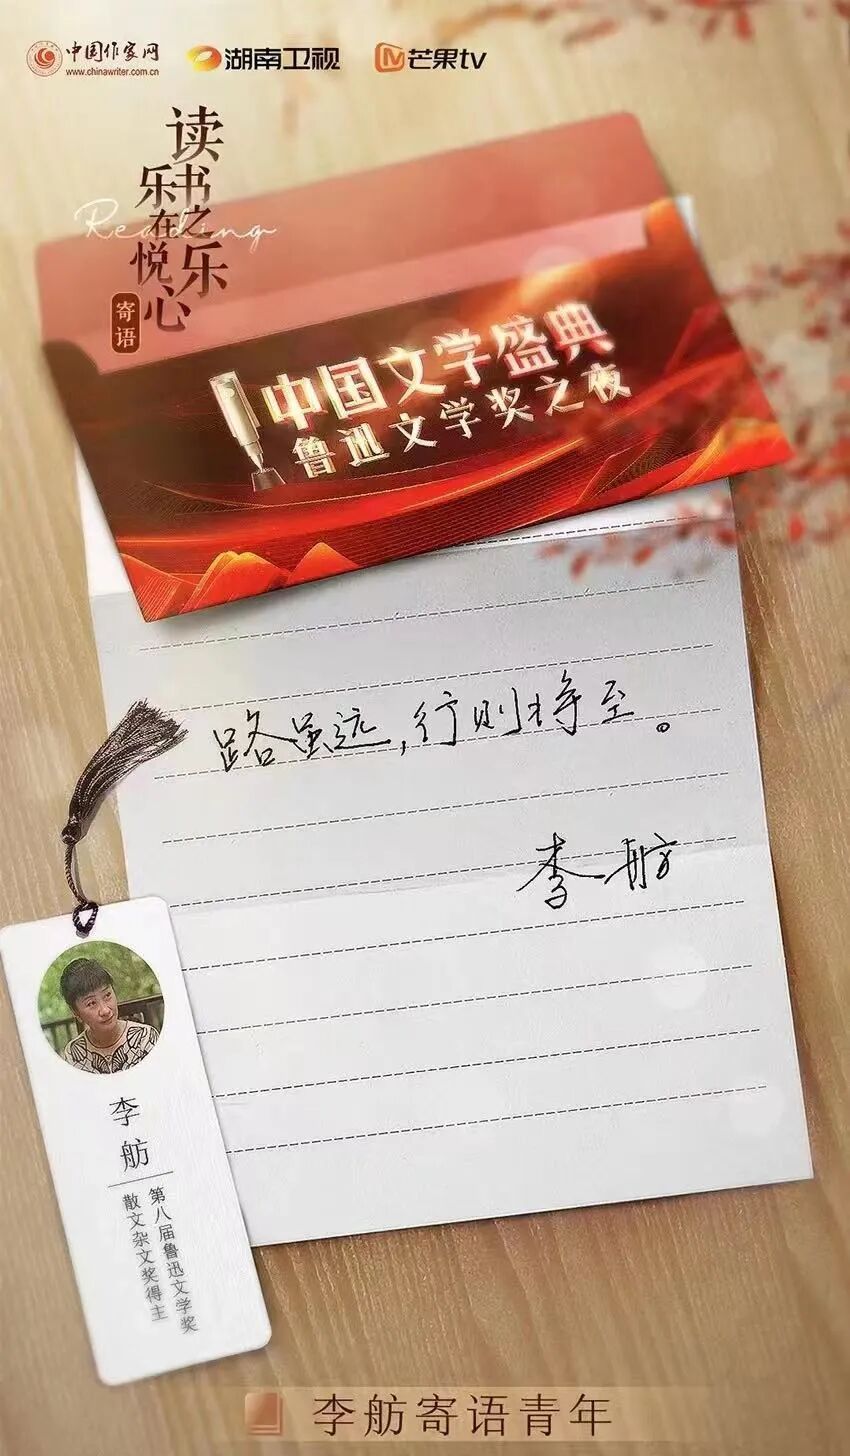 中国作家网
www.chinawriter.com.cn
湖南卫视
芒果tv
读书之乐
乐在悦心
Reading
寄语
中国文学盛典
鲁迅文学奖之夜
路虽远，行则将至。
李舫
李舫
第八届鲁迅文学奖
散文杂文奖得主
李舫寄语青年